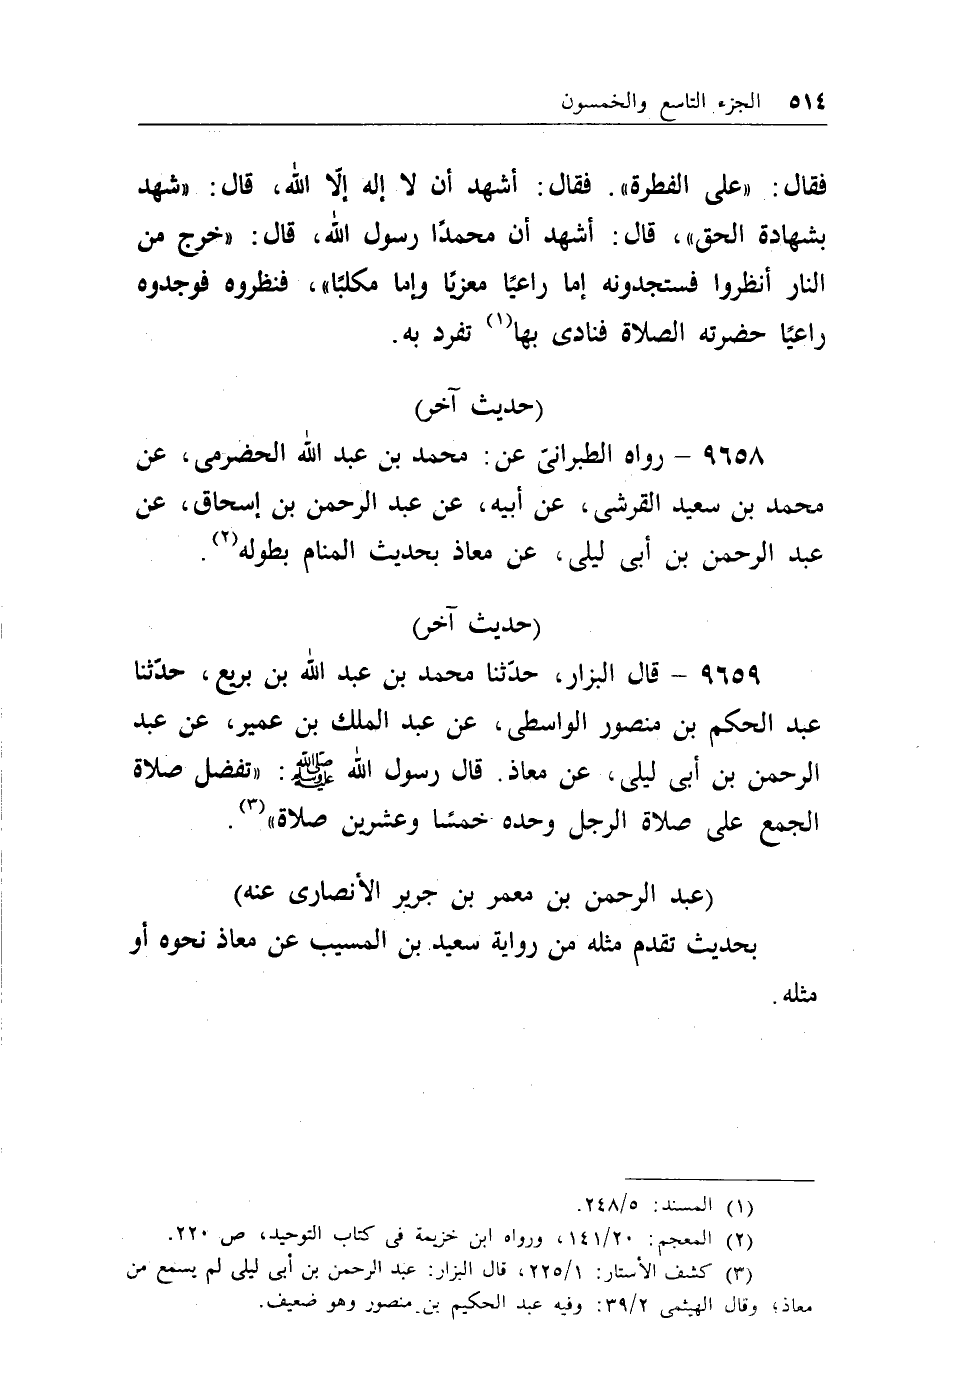 ٥١٤ الجزء التاسع والخمسون
فقال: «على الفطرة». فقال: أشهد أن لا إله إلّا الله، قال: «شهد
بشهادة الحق»، قال: أشهد أن محمدًا رسول الله، قال: «خرج من
النار أنظروا فستجدونه إما راعيًا معزبًا وإما مكلبًا»، فنظروه فوجدوه
راعيًا حضرته الصلاة فنادى بها(١) تفرد به.
(حديث آخر)
٩٦٥٨ - رواه الطبرانيّ عن: محمد بن عبد الله الحضرمى، عن
محمد بن سعيد القرشى، عن أبيه، عن عبد الرحمن بن إسحاق، عن
عبد الرحمن بن أبى ليلى، عن معاذ بحديث المنام بطوله(٢).
(حديث آخر)
٩٦٥٩ - قال البزار، حدّثنا محمد بن عبد الله بن بريع، حدّثنا
عبد الحكم بن منصور الواسطى، عن عبد الملك بن عمير، عن عبد
الرحمن بن أبى ليلى، عن معاذ. قال رسول الله ﷺ: «تفضل صلاة
الجمع على صلاة الرجل وحده خمسًا وعشرين صلاة»(٣).
(عبد الرحمن بن معمر بن جرير الأنصارى عنه)
بحديث تقدم مثله من رواية سعيد بن المسيب عن معاذ نحوه أو
مثله.
(١) المسند: ٢٤٨/٥.
(٢) المعجم: ١٤١/٢٠، ورواه ابن خزيمة فى كتاب التوحيد، ص ٢٢٠.
(٣) كشف الأستار: ٢٢٥/١، قال البزار: عبد الرحمن بن أبى ليلى لم يسمع من
معاذ؛ وقال الهيثمى ٣٩/٢: وفيه عبد الحكيم بن منصور وهو ضعيف.